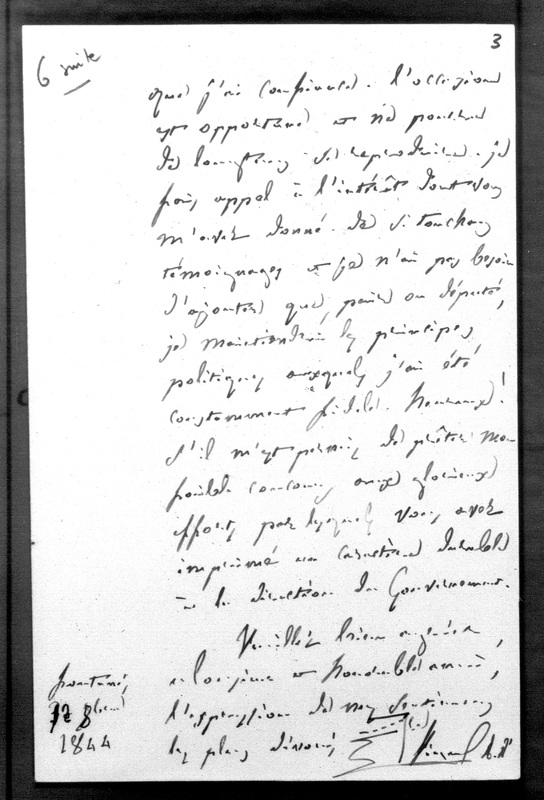 3
6 suite
que j'ai confiance. L'occasion
est opportune et ne pourra
de longtemps se reproduire. je
fais appel à l'intérêt dont vous
m'avez donné de si touchans
témoignages et je n'ai pas besoin
d'ajouter que, pair ou député,
je maintiendrai les principes
politiques auxquels j'ai été
constamment fidèle. heureux!
s'il m'est permis de prêter mon
faible concours aux glorieux
efforts par lesquels vous avez
imprimé un caractère durable
à la direction du Gouvernement.
Veuillez bien agréer,
et honorable ami,
l'expression de mes sentimens
les plus dévoués
7e 8(bre)
1844